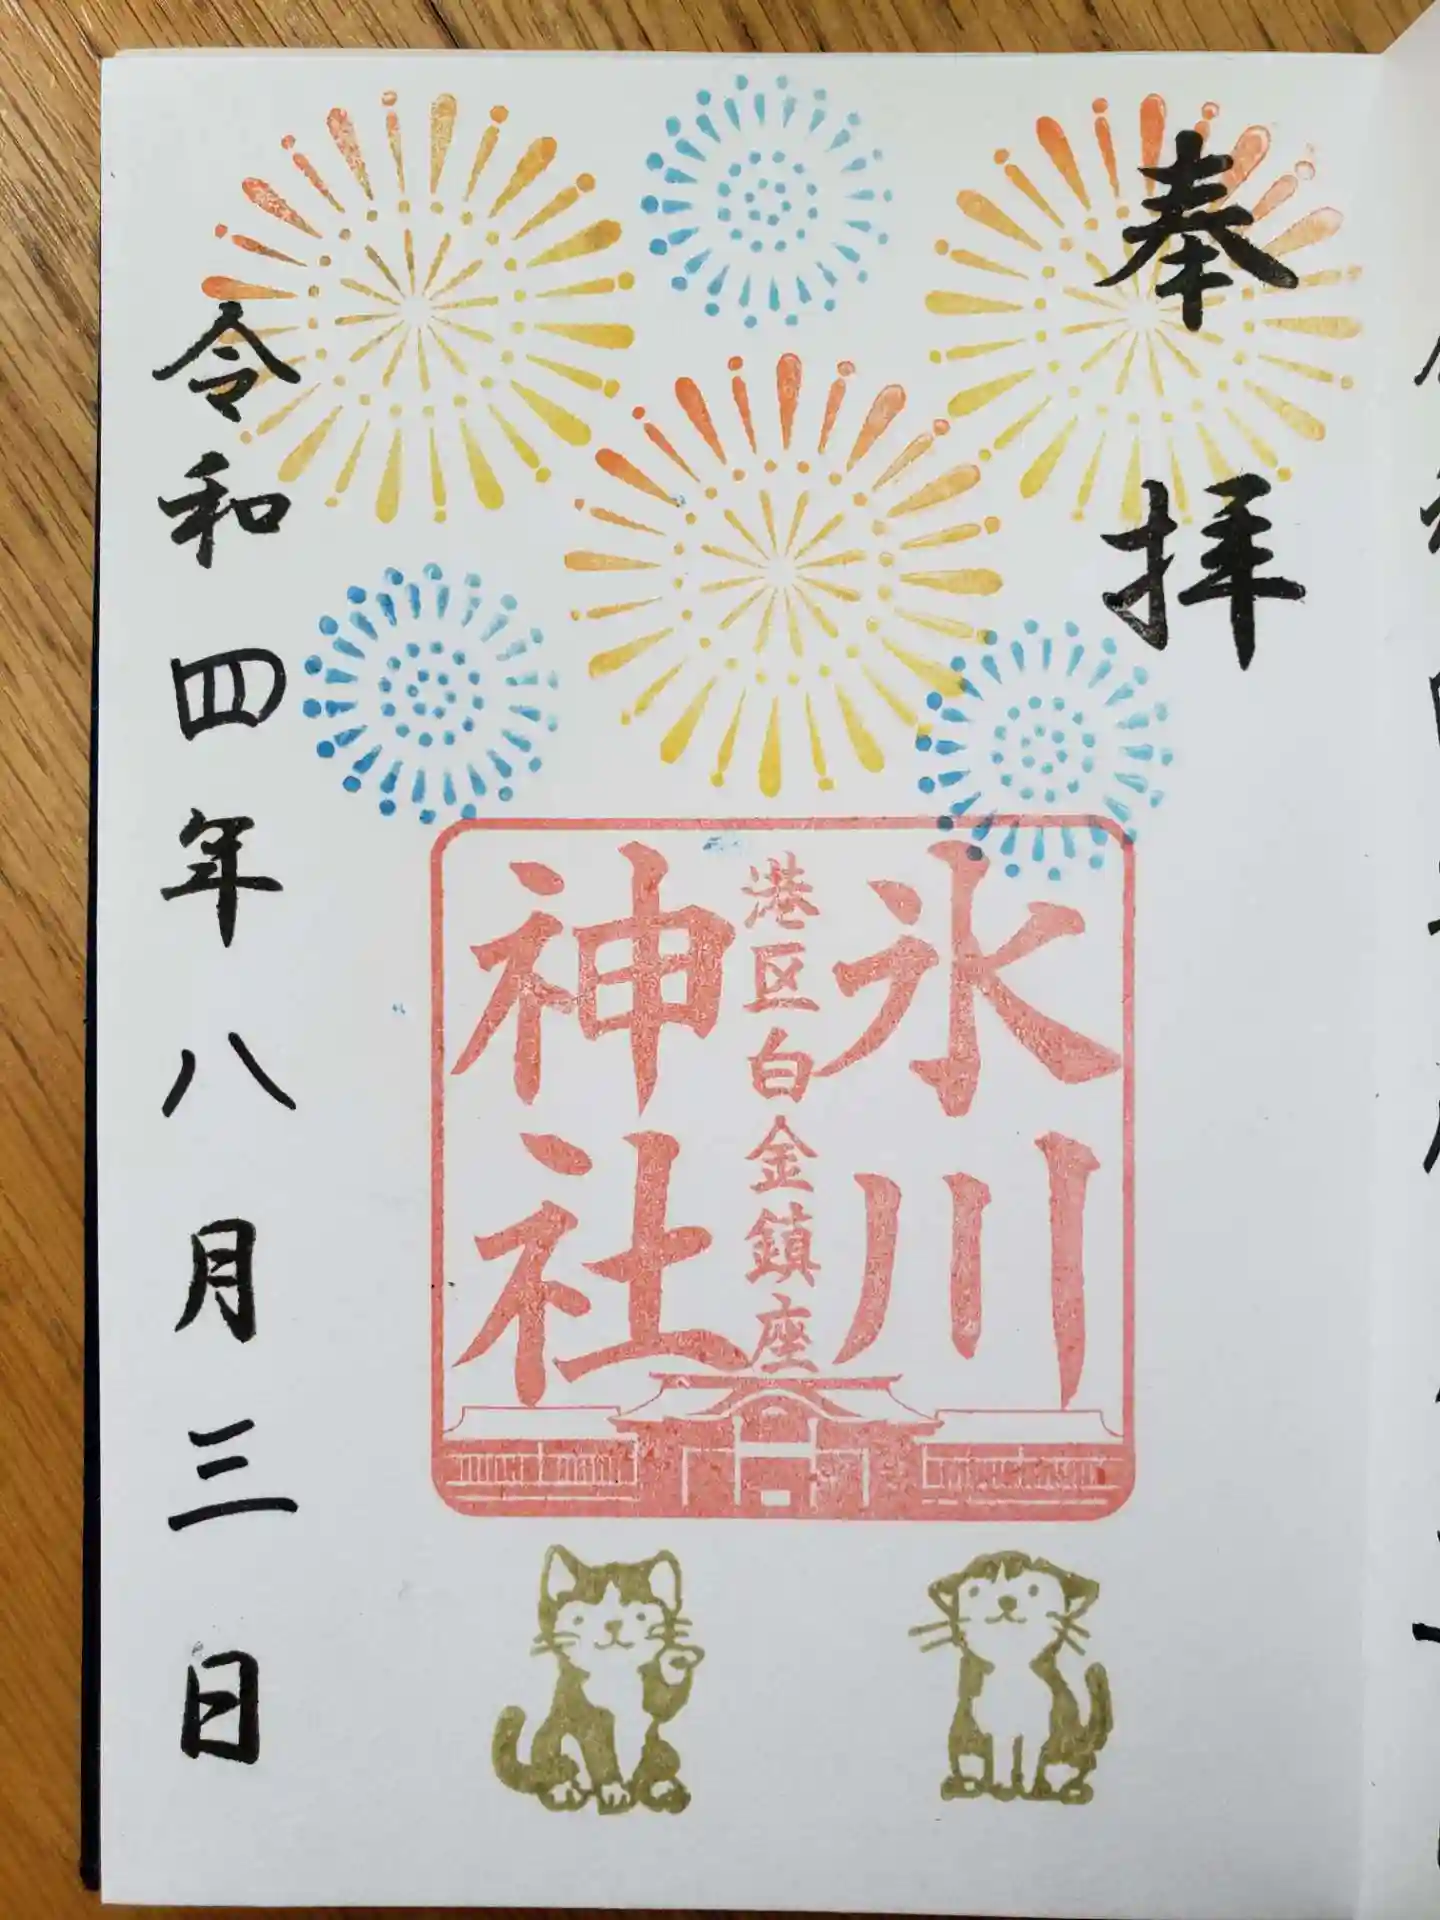 奉拝
氷川
港区白金鎮座
神社
令和四年八月三日